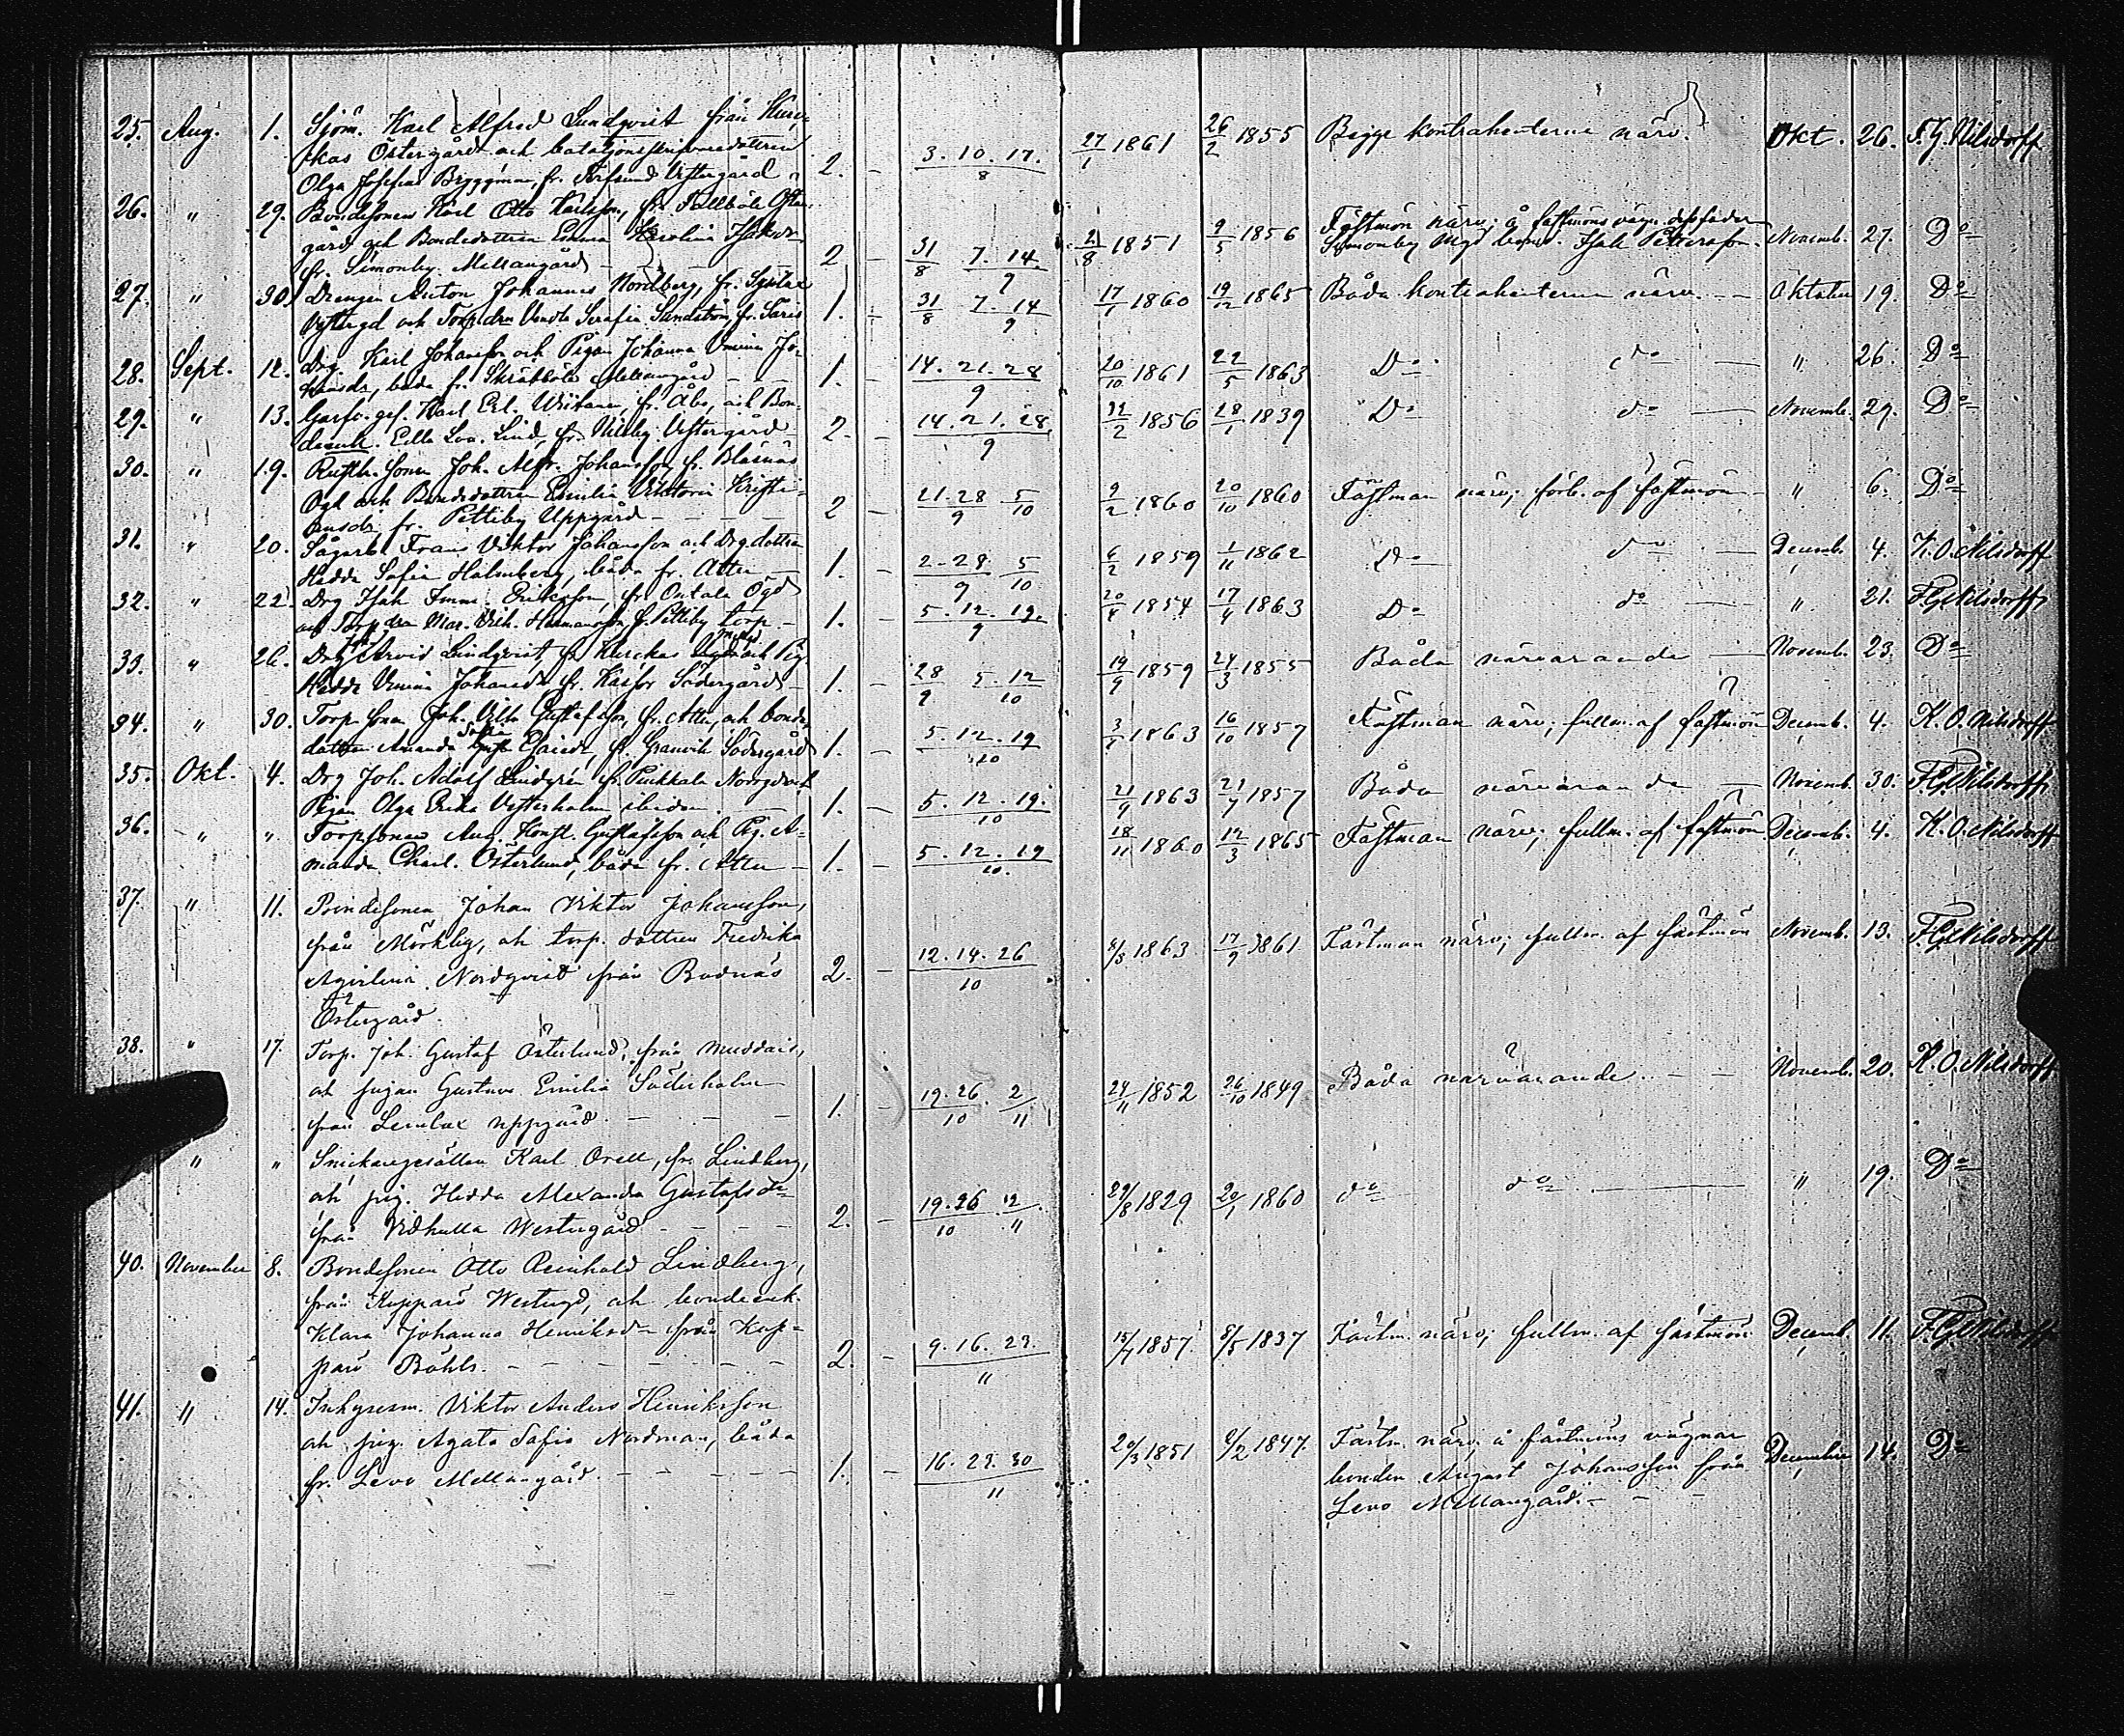 25. Aug. 1. Sjöm. Karl Alfred Lundqvist från Kurc-
kas Östergård och bataljons
Olga Josefina Bryggman, fr. Vestergård 2. – 3. 10. 17. / 8 27/1 1861 26/2 1855 Begge kontrahenterna närv. Okt. 26. F. G. Nilsdorff
26. " 29. Bondesonen Karl Otto Karlsson, fr. Öster-
gård och Bondedottren Emma Karolina Isaksdr
fr. Simonby Mellangård – 2 – 31/8 7. 14 / 9 2/8 1851 9/5 1856 Fästmön närv; å fästmöns vägn. dess fader
Simonby bond. Isak Petterson. Novemb. 27. Do
27. " 30. Drengen Anton Johannes Nordberg, fr.
Vestergd och Torp.dra Serafia Sandström, fr. 1. – 31/8 7. 14 / 9 17/1 1860 19/12 1865 Båda kontrahenterna närv. – – Oktober 19. Do
28. Sept. 12. Drg. Karl Johansson och Pigan Johanna Vmina Jo-
hansdr, båda fr. Skräbböle Mellangård – – 1. – 14. 21. 28 / 9 20/10 1861 22/5 1863 Do do – " 26. Do
29. " 13. Garfv. ges. Karl Erl. Wiitanen, fr. Åbo, och Bon-
deenk. Ella Lov. Lind, fr. Vestergård 2. – 14. 21. 28 / 9 22/2 1856 28/1 1839 Do do – Novemb. 29. Do
30. " 19. Rusth. sonen Joh. Alfr. Johansson, fr. Bläsnäs
Ögd och Bondedottren Emilia Viktoria Kristi-
ansdr, fr. Pettiby Uppgård – – – 2 – 21. 28 / 9 5/10 9/2 1860 20/10 1860 Fästman närv; förb. af fästmön – " 6. Do
31. " 20. Sågarb. Frans Viktor Johansson och Drg.dottren
Hedda Sofia Holmberg, båda fr. Attu – 1. – 2 – 28 / 9 5/10 6/2 1859 1/11 1862 Do do – Decemb. 4. K. O. Nilsdorff
32. " 22. Drg Isak Imm. Eriksson, fr. Ontala Ögd
och Torp.dra Mar. Vilh. Hermansson fr. Pettiby torp – 1. – 5. 12. 19. / 9 20/4 1854 17/4 1863 Do do – " 21. F. G. Nilsdorff
33. " 26. Drg Arvid Lindqvist, fr Kurckas och Pig.
Hedda Vmina Johansdr fr. Södergård – 1. – 28/9 5. 12 / 10 19/9 1859 24/3 1855 Båda närvarande – Novemb. 23. Do
34. " 30. Torp. sonen Joh. Vilh. Gustafsson, fr. Attu, och bonde
dottren Amanda Sofia Esaiedr, fr. Granvik Södergård 1. – 5. 12. 19 / 10 3/1 1863 16/10 1857 Fästman närv; fullm. af fästmön Decemb. 4. K. O. Nilsdorff
35. Okt. 4. Drg Joh. Adolf Lindgrén fr. Norrgd och
Pigan Olga Erika Vesterholm ibidem. – 1. – 5. 12. 19. / 10 21/9 1863 21/7 1857 Båda närvarande – Novemb. 30. F. G. Nilsdorff
36. " " Torpsonen Aug. Konst. Gustafsson och Pig. A-
manda Charl. Österlund, båda fr. Attu – 1. – 5. 12. 19 / 10. 18/11 1860 12/3 1865 Fästman närv; fullm. af fästmön Decemb. 4. K. O. Nilsdorff
37. " 11. Bondesonen Johan Viktor Johansson,
från Mörkby, och torp. dottren Fredrika
Nordqvist från Bodnäs
Östergård. 2. – 12. 14. 26 / 10 8/3 1863 17/9 1861 Fästman närv; fullm. af fästmön Novemb. 13. F. G. Nilsdorff
38. " 17. Torp. Joh. Gustaf Österlund, från Muddais,
och pigan Gustava Emilia Söderholm
från Lemlax uppgård. – – – 1. – 19. 26. / 10 2/11 24/11 1852 26/10 1849 Båda närvarande – – Novemb. 20. K. O. Nilsdorff
" " Snickaregesällen Karl Orell, fr. Lindberg,
och pig. Hedda Alexandra Gustafsdr
från Vidhulla Westergård – – – 2. – 19. 26 / 10 2/11 29/8 1829 20/1 1860 do do – " 19. Do
40. November 8. Bondesonen Otto Reinhold Lindberg,
från Koppars Westergd, och bondeenk.
Klara Johanna Henriksdr från Kop-
pars Böhls. – – – – 2. – 9. 16. 23. / 11 15/7 1857 8/5 1837 Fästm. närv; fullm. af fästmön Decemb. 11. F. G. Nilsdorff
41. " 14. Inhysesm. Viktor Anders Henriksson
och pig. Agata Sofia Nordman, båda
fr. Levo Mellangård. – – – 1. – 16. 23. 30 / 11 20/3 1851 6/2 1847. Fästm. närv; å fästmöns vägnar
bonden August Johansson från
Levo Mellangård. – – December 14. Do